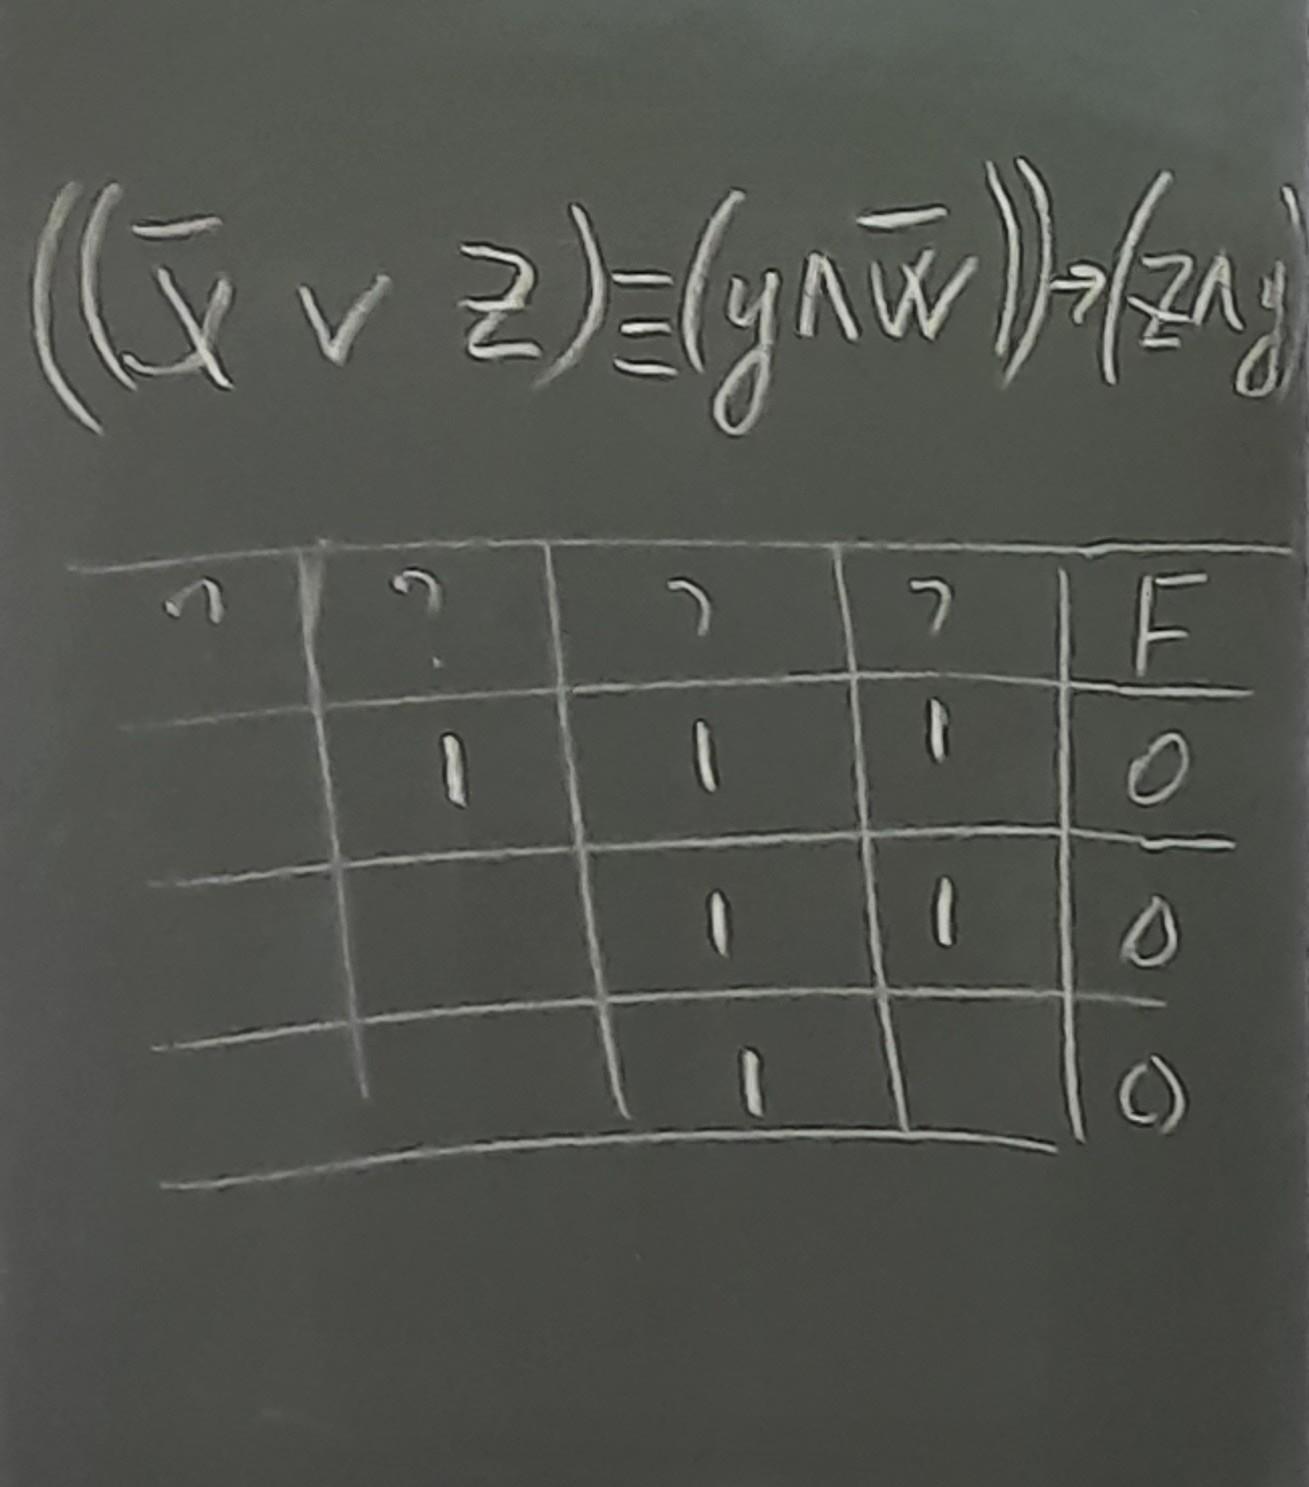 ((x̄ ∨ z) ≡ (y ∧ w̄)) → (z ∧ y)
? ? ? ? F
1 1 1 0
1 1 0
1 0